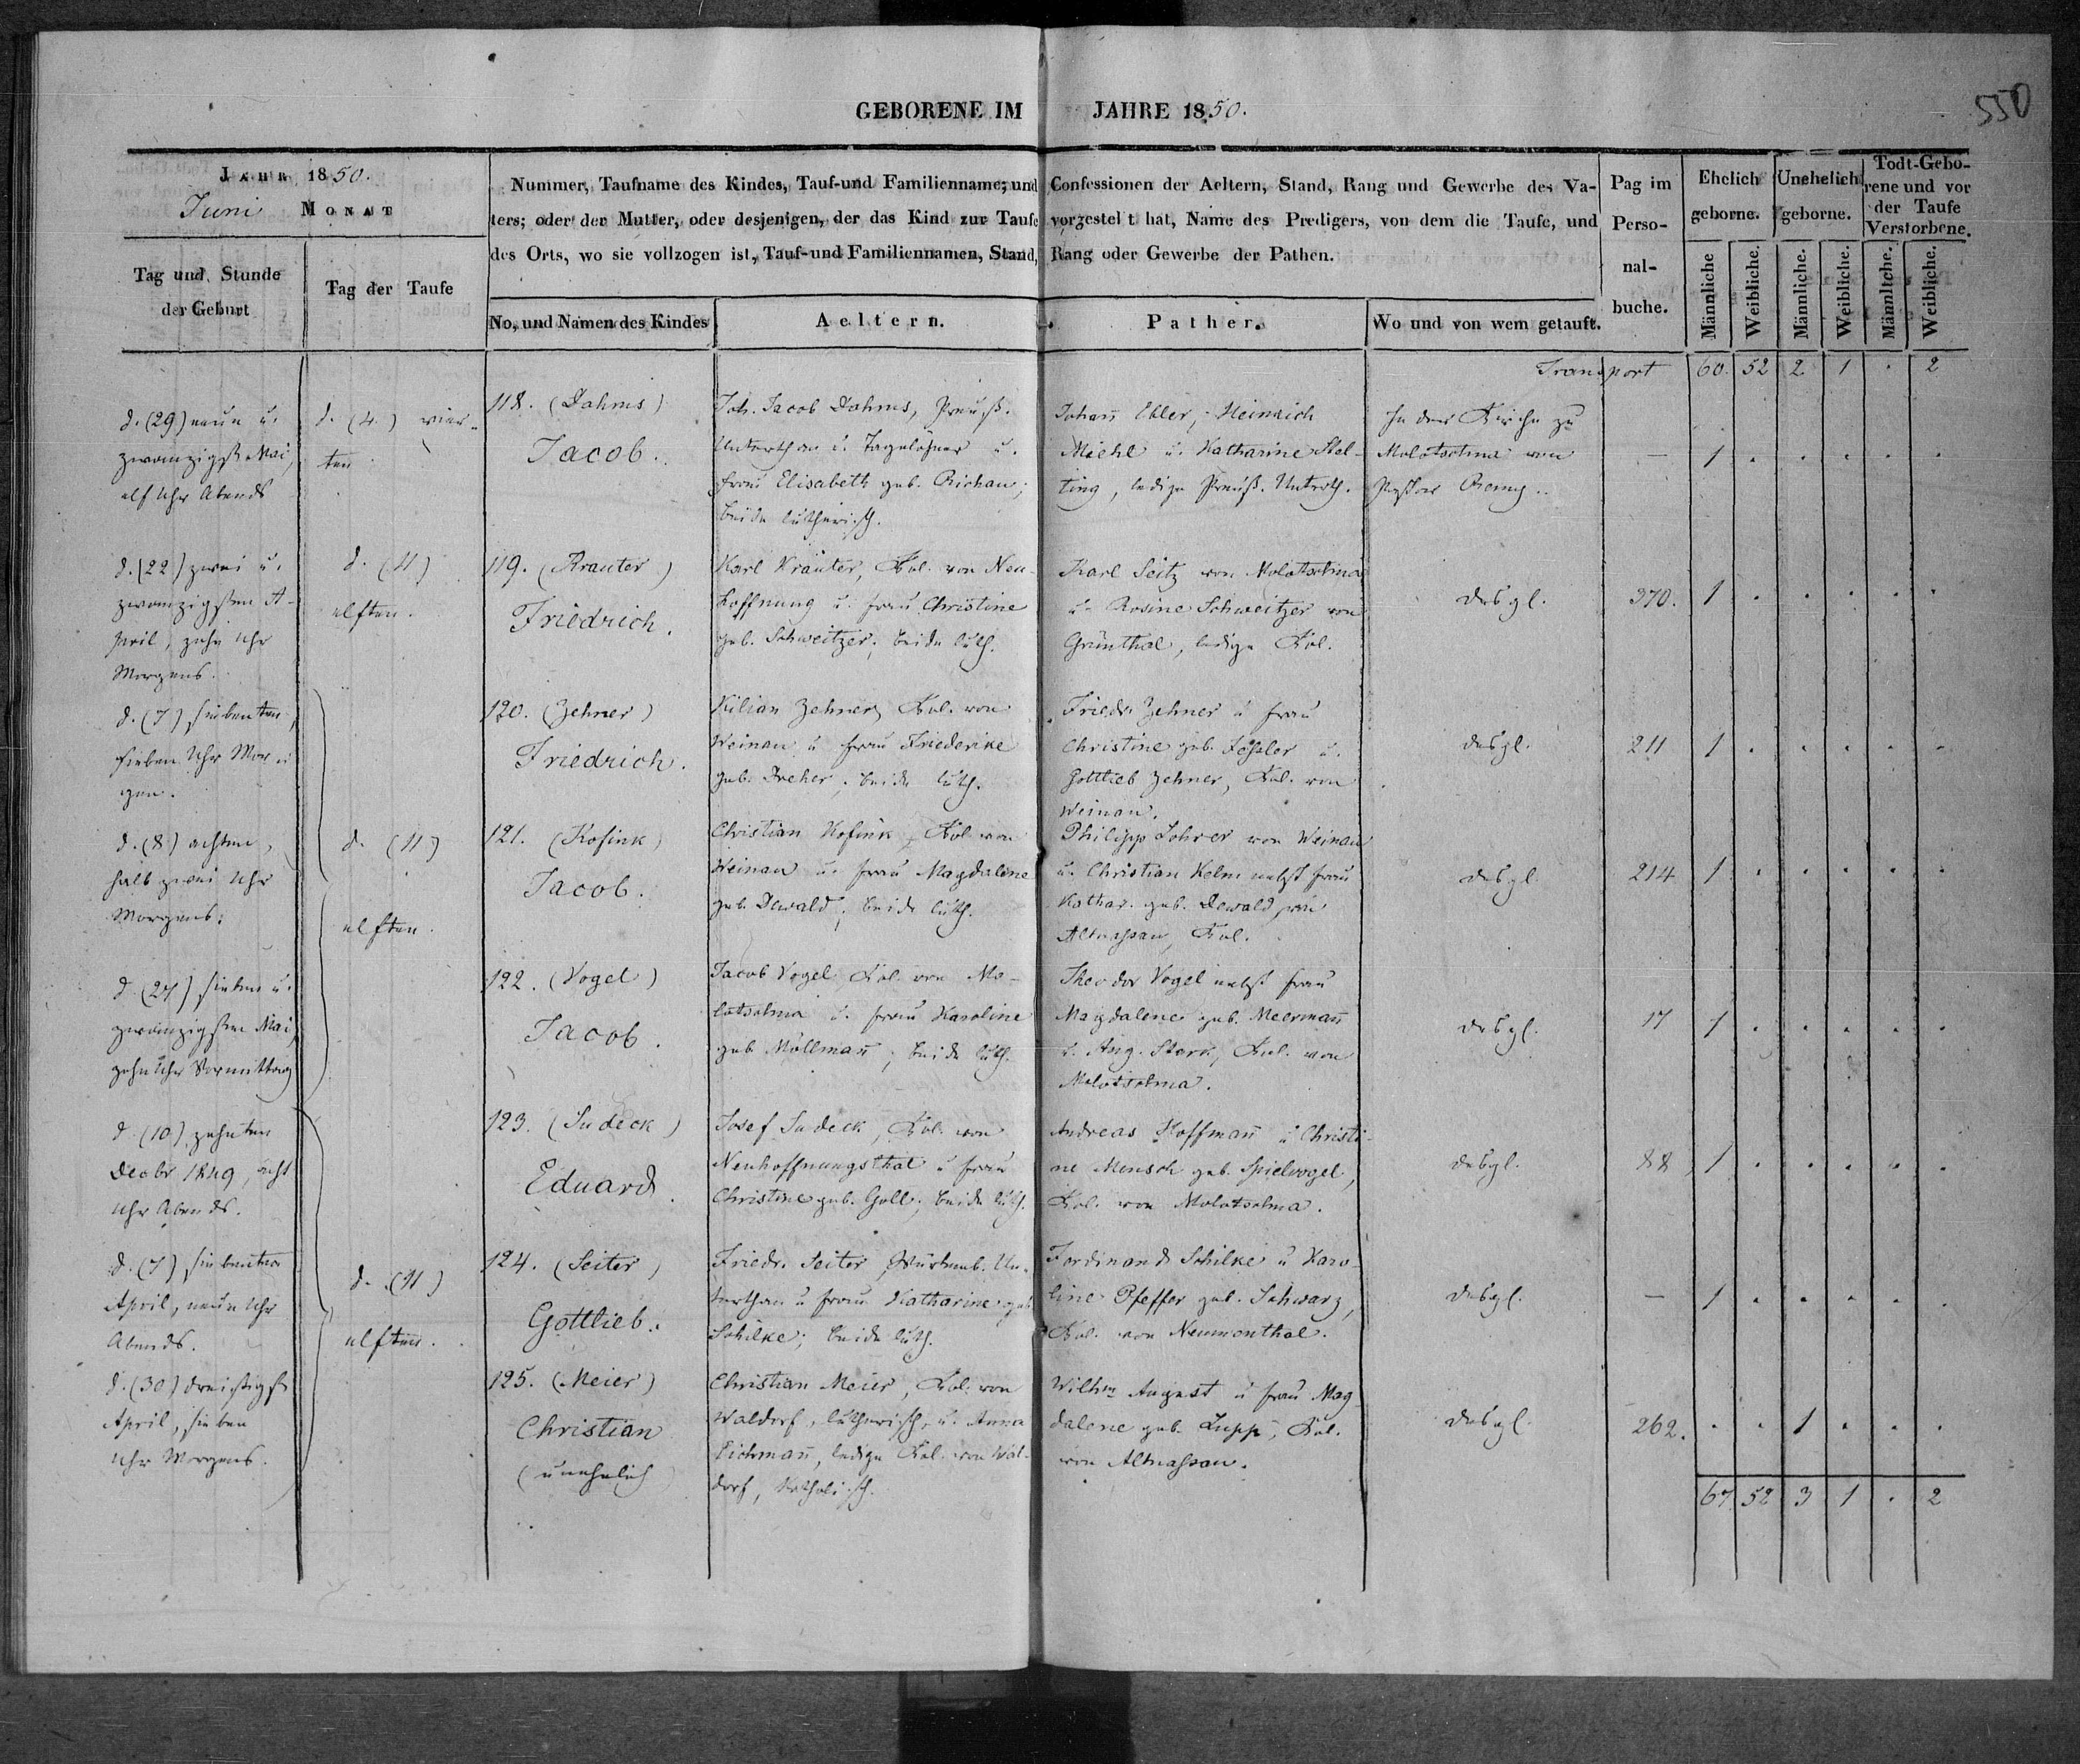 550
GEBORENE IM JAHRE 1850.
JAHR 1850.
Juni MONAT
Nummer, Taufname des Kindes, Tauf-und Familienname; und Confessionen der Aeltern, Stand, Rang und Gewerbe des Va-
ters; oder der Mutter, oder desjenigen, der das Kind zur Taufe vorgestel t hat, Name des Predigers, von dem die Taufe, und
des Orts, wo sie vollzogen ist, Tauf-und Familiennamen, Stand, Rang oder Gewerbe der Pathen.
Pag im
Perso-
nal-
buche.
Ehelich
geborne.
Unehelich
geborne.
Todt-Gebo-
rene und vor
der Taufe
Verstorbene.
Tag und Stunde
der Geburt
Tag der Taufe
No, und Namen des Kindes
Aeltern.
Pather.
Wo und von wem getauft.
Männliche
Weibliche.
Männliche.
Weibliche.
Männltche.
Weibliche.
Transport 60. 52 2 1 . 2
d. (29) neun u.
zwanzigst. Mai,
elf Uhr Abends
d. (4.) vier-
ten
118. (Dahms)
Jacob.
Joh. Jacob Dahms, Preuß.
Unterthan u. Tagelöhner u.
Frau Elisabeth geb. Richau;
beide lutherisch.
Johañ Ebler, Heinrich
Miehl u. Katharine Stel-
ting, ledige Preuß. Unterth.
In der Kirche zu
Molotschna von
Pastor
— 1 . . . . .
d. (22) zwei u.
zwanzigsten A-
pril, zehn Uhr
Morgens.
d. (11)
elften.
119. (Krauter)
Friedrich.
Karl Kräuter, Kol. von Neu-
hoffnung u. Frau Christine
geb. Schweitzer; beide luth.
Karl Seitz von Molotschna
u. Rosine Schweitzer von
Grünthal, ledige Kol.
desgl.
370. 1 . . . . .
d. (7) siebenten,
sieben Uhr Mor-
gen.
120. (Zehner)
Friedrich.
Kilian Zehner, Kol. von
Weinau u Frau Friederike
geb. Dreher; beide luth.
Friedr. Zehner u Frau
Christine geb. u.
Gottlieb Zehner, Kol. von
Weinau.
desgl.
211 1 . . . . .
d. (8) achten,
halb zwei Uhr
Morgens.
d. (11)
elften.
121. (Kosink)
Jacob.
Christian Kosink, Kol von
Weinau u. Frau Magdalene
geb. Dewald; beide luth.
Philipp Lohrer von Weinau
u. Christian Kelm nebst Frau
Kathar. geb. Dewald, von
Altnassau, Kol.
desgl.
214 1 . . . . .
d. (27) sieben u.
zwanzigsten Mai,
zehn Uhr Vormittag
122. (Vogel)
Jacob.
Jacob Vogel Kol. von Mo-
lotschna u. Frau Karoline
geb Möllmañ; beide luth.
Theodor Vogel nebst Frau
Magdalene geb. Meermañ
u. Aug. Stark, Kol. von
Molotschna.
desgl.
17 1 . . . . .
d. (10) zehnten
Decbr 1849, acht
Uhr Abends.
123. (Sudeck)
Eduard.
Josef Sudeck, Kol. von
Neuhoffnungsthal u Frau
Christine geb. Goll; beide luth.
Andreas Hoffmañ u Christi-
ne Mensch geb. Spielvogel,
Kol. von Molotschna.
desgl.
88 1 . . . . .
d. (7) siebenten
April, neun Uhr
Abends.
d. (11)
elften.
124. (Seiter)
Gottlieb.
Friedr. Seiter, Würtemb. Un-
terthan u Frau Katharine geb
Schilke; beide luth.
Ferdinand Schilke u Karo-
line Pfeffer geb. Schwarz,
Kol. von Neumonthal.
desgl.
— 1 . . . . .
d. (30) dreißigst.
April, sieben
Uhr Morgens.
125. (Meier)
Christian
(unehelich)
Christian Meier, Kol. von
Waldorf, lutherisch, u. Anna
Eichmañ, ledige Kol. von Wal-
dorf, katholisch.
Wilhm August u Frau Mag-
dalene geb. Lupp, Kol.
von Altnassau.
desgl.
262. . . 1 . . .
67 52 3 1 . 2